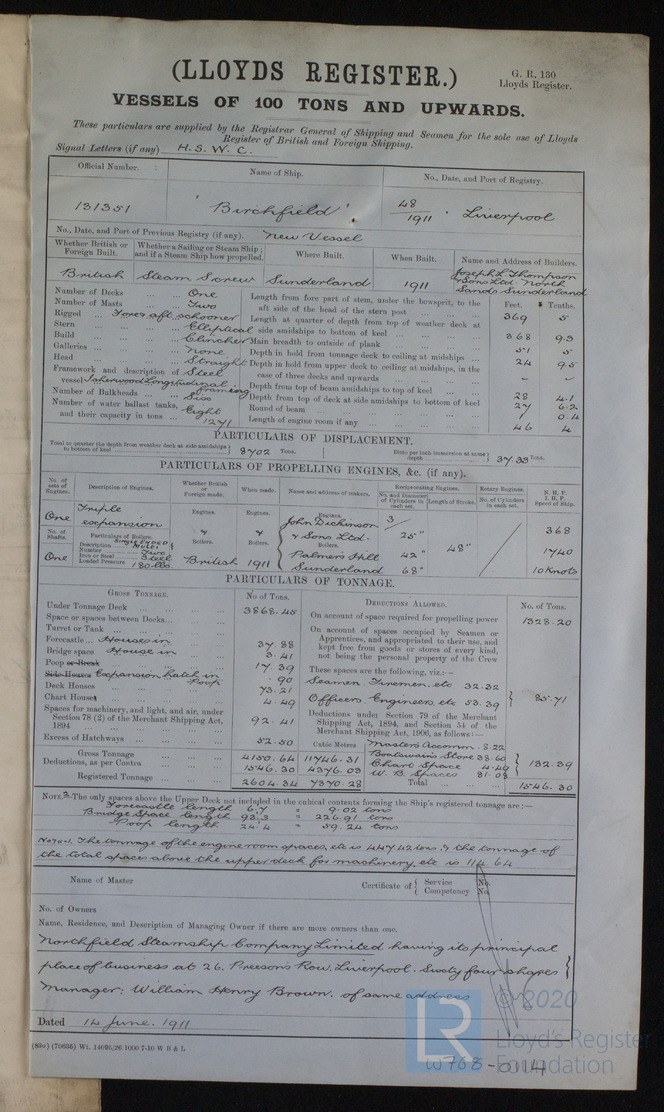 (LLOYDS REGISTER.)
G. R. 130
Lloyds Register.
VESSELS OF 100 TONS AND UPWARDS.
These particulars are supplied by the Registrar General of Shipping and Seamen for the sole use of Lloyds
Register of British and Foreign Shipping.
Signal Letters (if any) H. S. W. C.
Official Number.
Name of Ship.
No., Date, and Port of Registry.
131351
'Birchfield'
48/1911 Liverpool
No., Date, and Port of Previous Registry (if any). New Vessel
Whether British or Foreign Built.
Whether a Sailing or Steam Ship; and if a Steam Ship how propelled.
Where Built.
When Built.
Name and Address of Builders.
British
Steam Screw
Sunderland
1911
Joseph L Thompson
& Sons Ltd. North
Sands Sunderland
Number of Decks ... One
Number of Masts ... Two
Rigged Fore & aft schooner
Stern ... Elliptical
Build ... Clincher
Galleries ... None
Head ... Straight
Framework and description of vessel Steel
Isherwood Longitudinal framing
Number of Bulkheads ... Six
Number of water ballast tanks, and their capacity in tons ... Eight
1271
Feet. Tenths.
Length from fore part of stem, under the bowsprit, to the aft side of the head of the stern post 369 5
Length at quarter of depth from top of weather deck at side amidships to bottom of keel 368 9.3
Main breadth to outside of plank 51 5
Depth in hold from tonnage deck to ceiling at midships 24 9.5
Depth in hold from upper deck to ceiling at midships, in the case of three decks and upwards – –
Depth from top of beam amidships to top of keel 28 4.1
Depth from top of deck at side amidships to bottom of keel 27 6.2
Round of beam 1 0.4
Length of engine room if any 46 4
PARTICULARS OF DISPLACEMENT.
Total to quarter the depth from weather deck at side amidships to bottom of keel 8702 Tons.
Ditto per inch immersion at same depth 37.33 Tons.
PARTICULARS OF PROPELLING ENGINES, &c. (if any).
No. of sets of Engines.
Description of Engines.
Whether British or Foreign made.
When made.
Name and address of makers.
Reciprocating Engines.
No. and Diameter of Cylinders in each set.
Length of Stroke.
Rotary Engines.
No. of Cylinders in each set.
N. H. P.
I. H. P.
Speed of Ship.
One
Triple
expansion
Engines.
Engines.
Engines.
John Dickinson
& Sons Ltd.
Palmers Hill
Sunderland
3
25"
42"
68"
48"
368
1740
10 Knots
No. of Shafts.
Particulars of Boilers.
Description Single Ended Multi
Number Two
Iron or Steel Steel
Loaded Pressure 180 lbs
Boilers.
Boilers.
Boilers.
One
British
1911
PARTICULARS OF TONNAGE.
GROSS TONNAGE.
No of Tons.
DEDUCTIONS ALLOWED.
No. of Tons.
Under Tonnage Deck 3868.45
Space or spaces between Decks
Turret or Tank
Forecastle Houses in 37.88
Bridge space House in 3.41
Poop or Break 17.39
Side Houses Expansion hatch in Poop .90
Deck Houses 73.21
Chart House 4.49
Spaces for machinery, and light, and air, under Section 78 (2) of the Merchant Shipping Act, 1894 92.41
Excess of Hatchways 52.50
On account of space required for propelling power 1328.20
On account of spaces occupied by Seamen or Apprentices, and appropriated to their use, and kept free from goods or stores of every kind, not being the personal property of the Crew
These spaces are the following, viz.:–
Seamen, Firemen, etc 32.32
Officers, Engineers, etc 53.39
85.71
Deductions under Section 79 of the Merchant Shipping Act, 1894, and Section 54 of the Merchant Shipping Act, 1906, as follows:–
Cubic Metres
Masters Accomm. 8.22
Boatswain's Store 38.60
Chart Space 4.49
W. B. Spaces 81.08
132.39
Gross Tonnage 4150.64 11746.31
Deductions, as per Contra 1546.30 4376.03
Registered Tonnage 2604.34 7370.28
Total 1546.30
NOTE.2–The only spaces above the Upper Deck not included in the cubical contents forming the Ship's registered tonnage are:–
Forecastle length 6.7 = 9.02 tons
Bridge Space length 93.3 = 226.91 tons
Poop length 24.4 = 59.24 tons
Note 1. The tonnage of the engine room spaces, etc is 447.42 tons, & the tonnage of
the total spaces above the upper deck for machinery, etc is 114.64
Name of Master
Certificate of Service No.
Competency No.
No. of Owners
Name, Residence, and Description of Managing Owner if there are more owners than one.
Northfield Steamship Company Limited having its principal
place of business at 26, Preesons Row, Liverpool. Sixty four shares
Manager: William Henry Brown. of same address
Dated 14 June. 1911
© 2020
LR
Lloyd's Register
Foundation
W768-0114